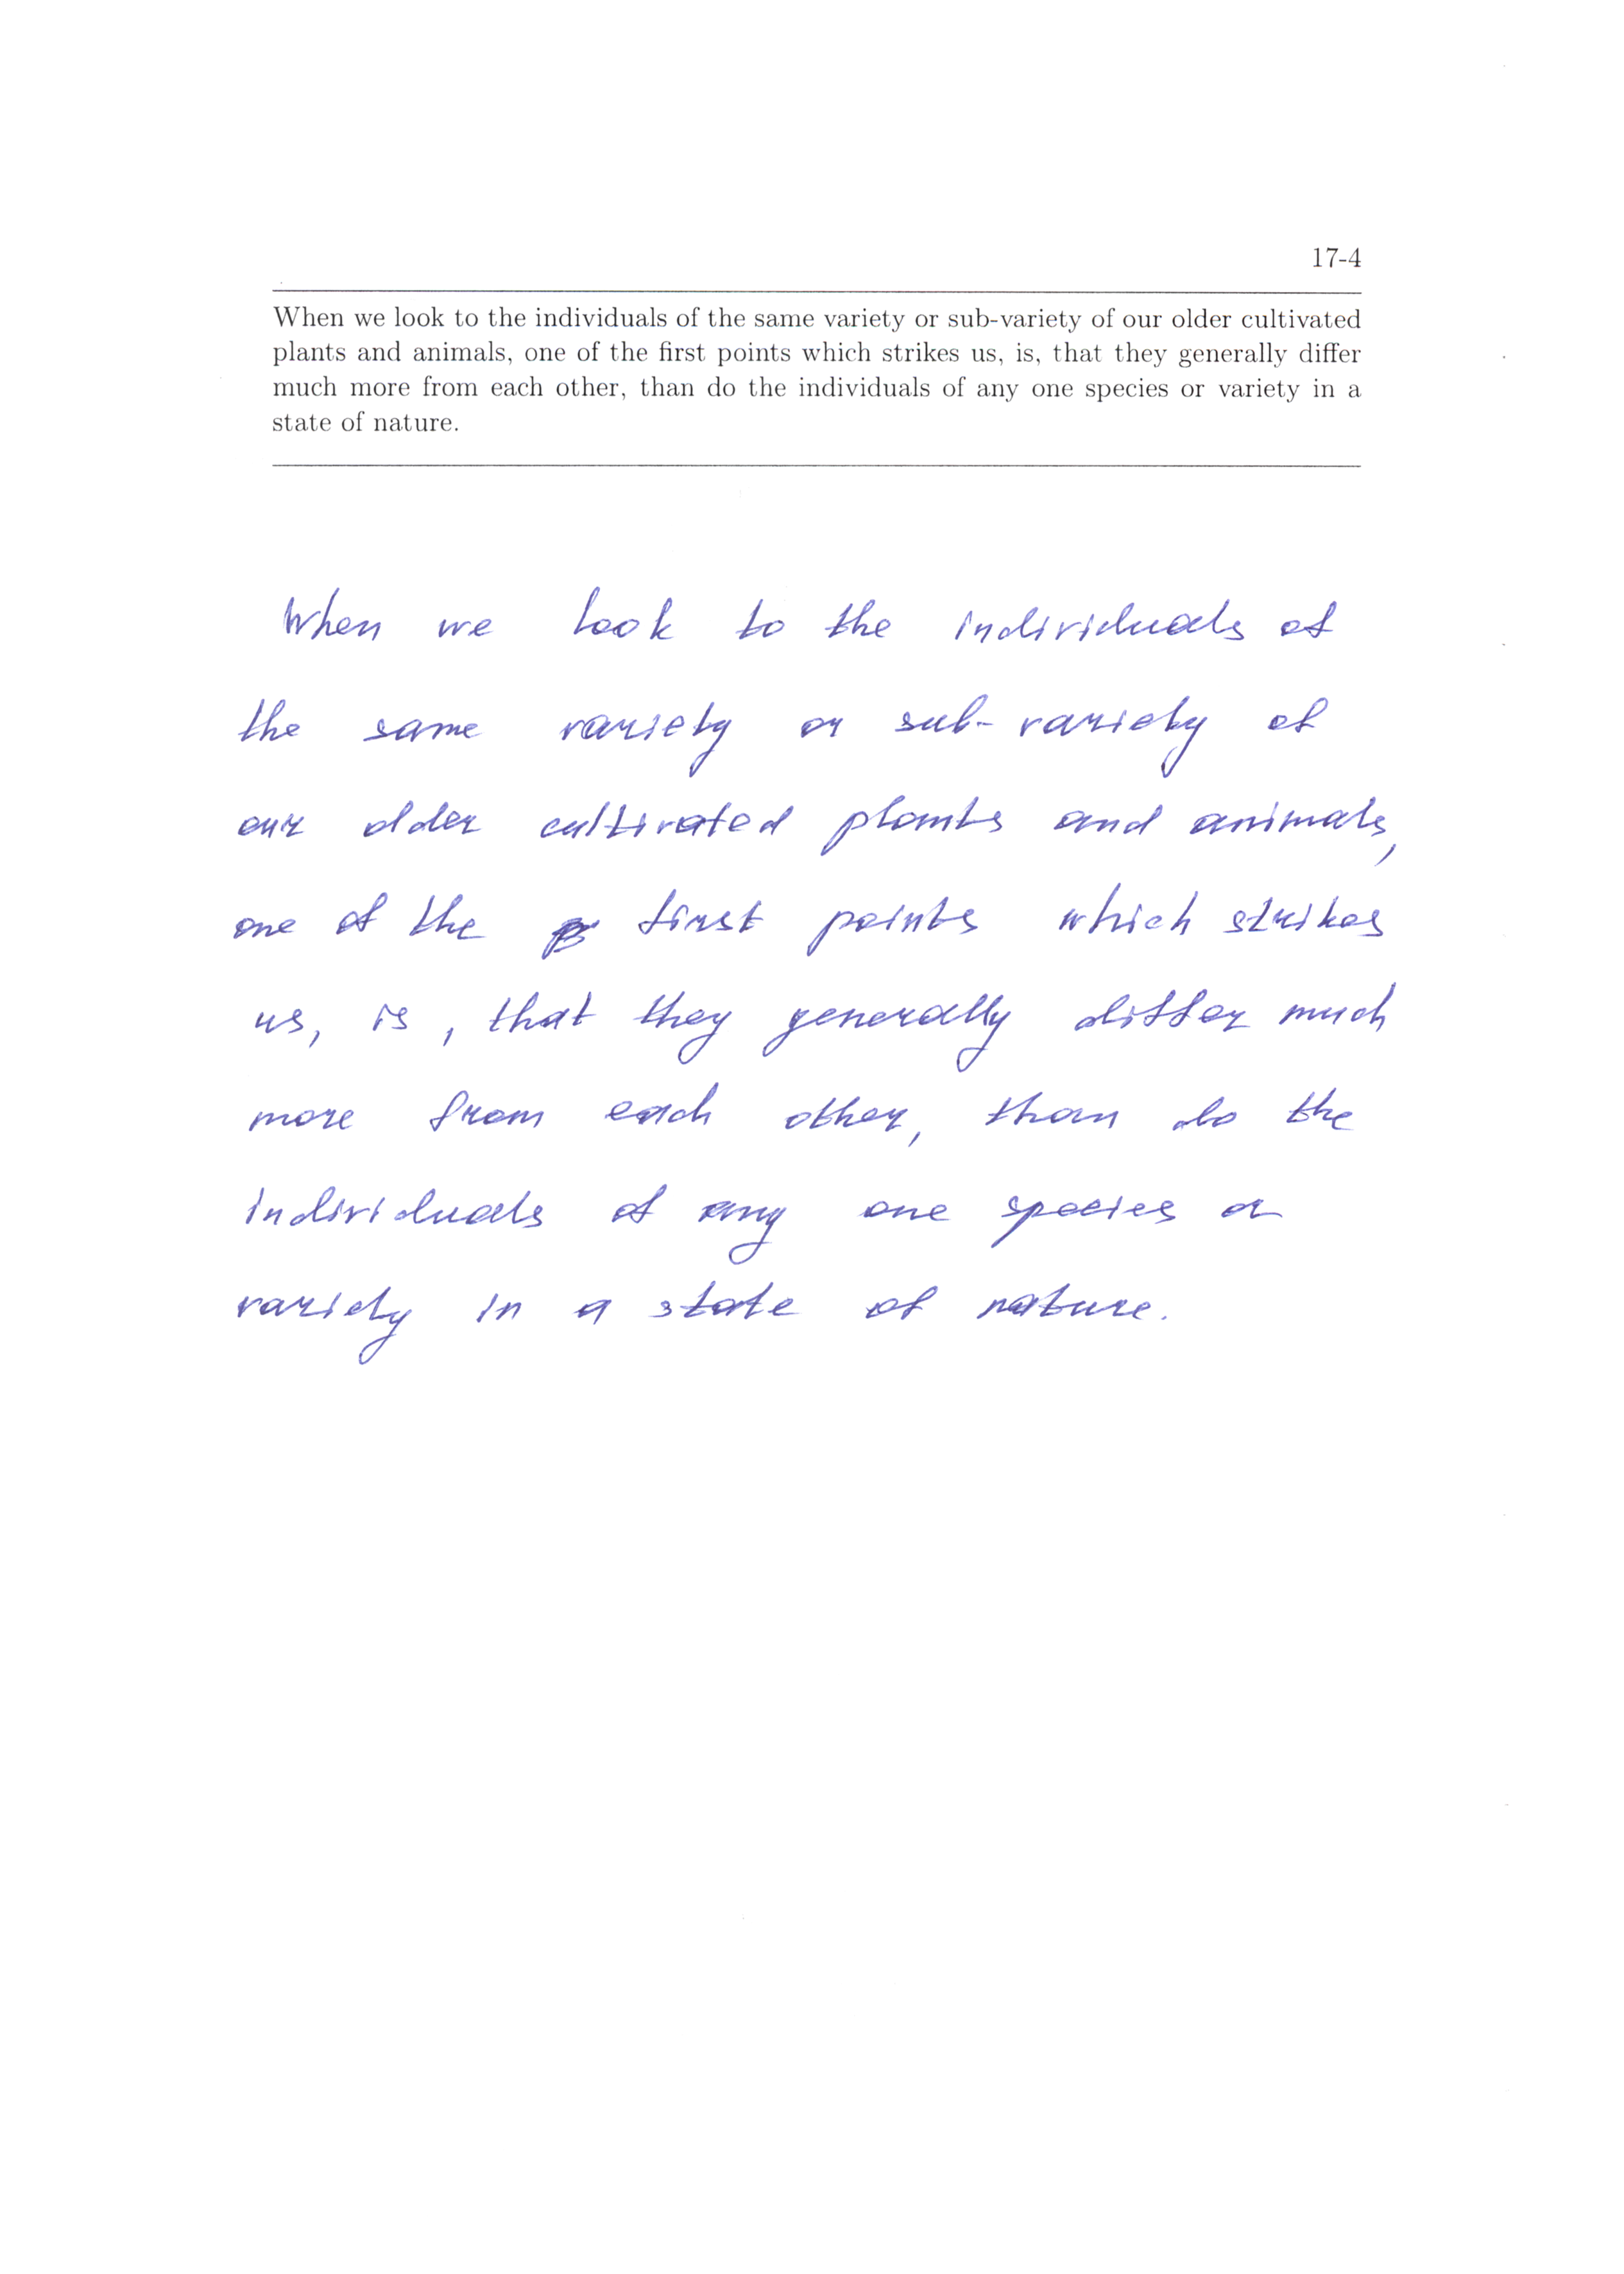 17-4
When we look to the individuals of the same variety or sub-variety of our older cultivated
plants and animals, one of the first points which strikes us, is, that they generally differ
much more from each other, than do the individuals of any one species or variety in a
state of nature.
When we look to the individuals of
the same variety or sub-variety of
our older cultivated plants and animals,
one of the first points which strikes
us, is, that they generally differ much
more from each other, than do the
individuals of any one species or
variety in a state of nature.